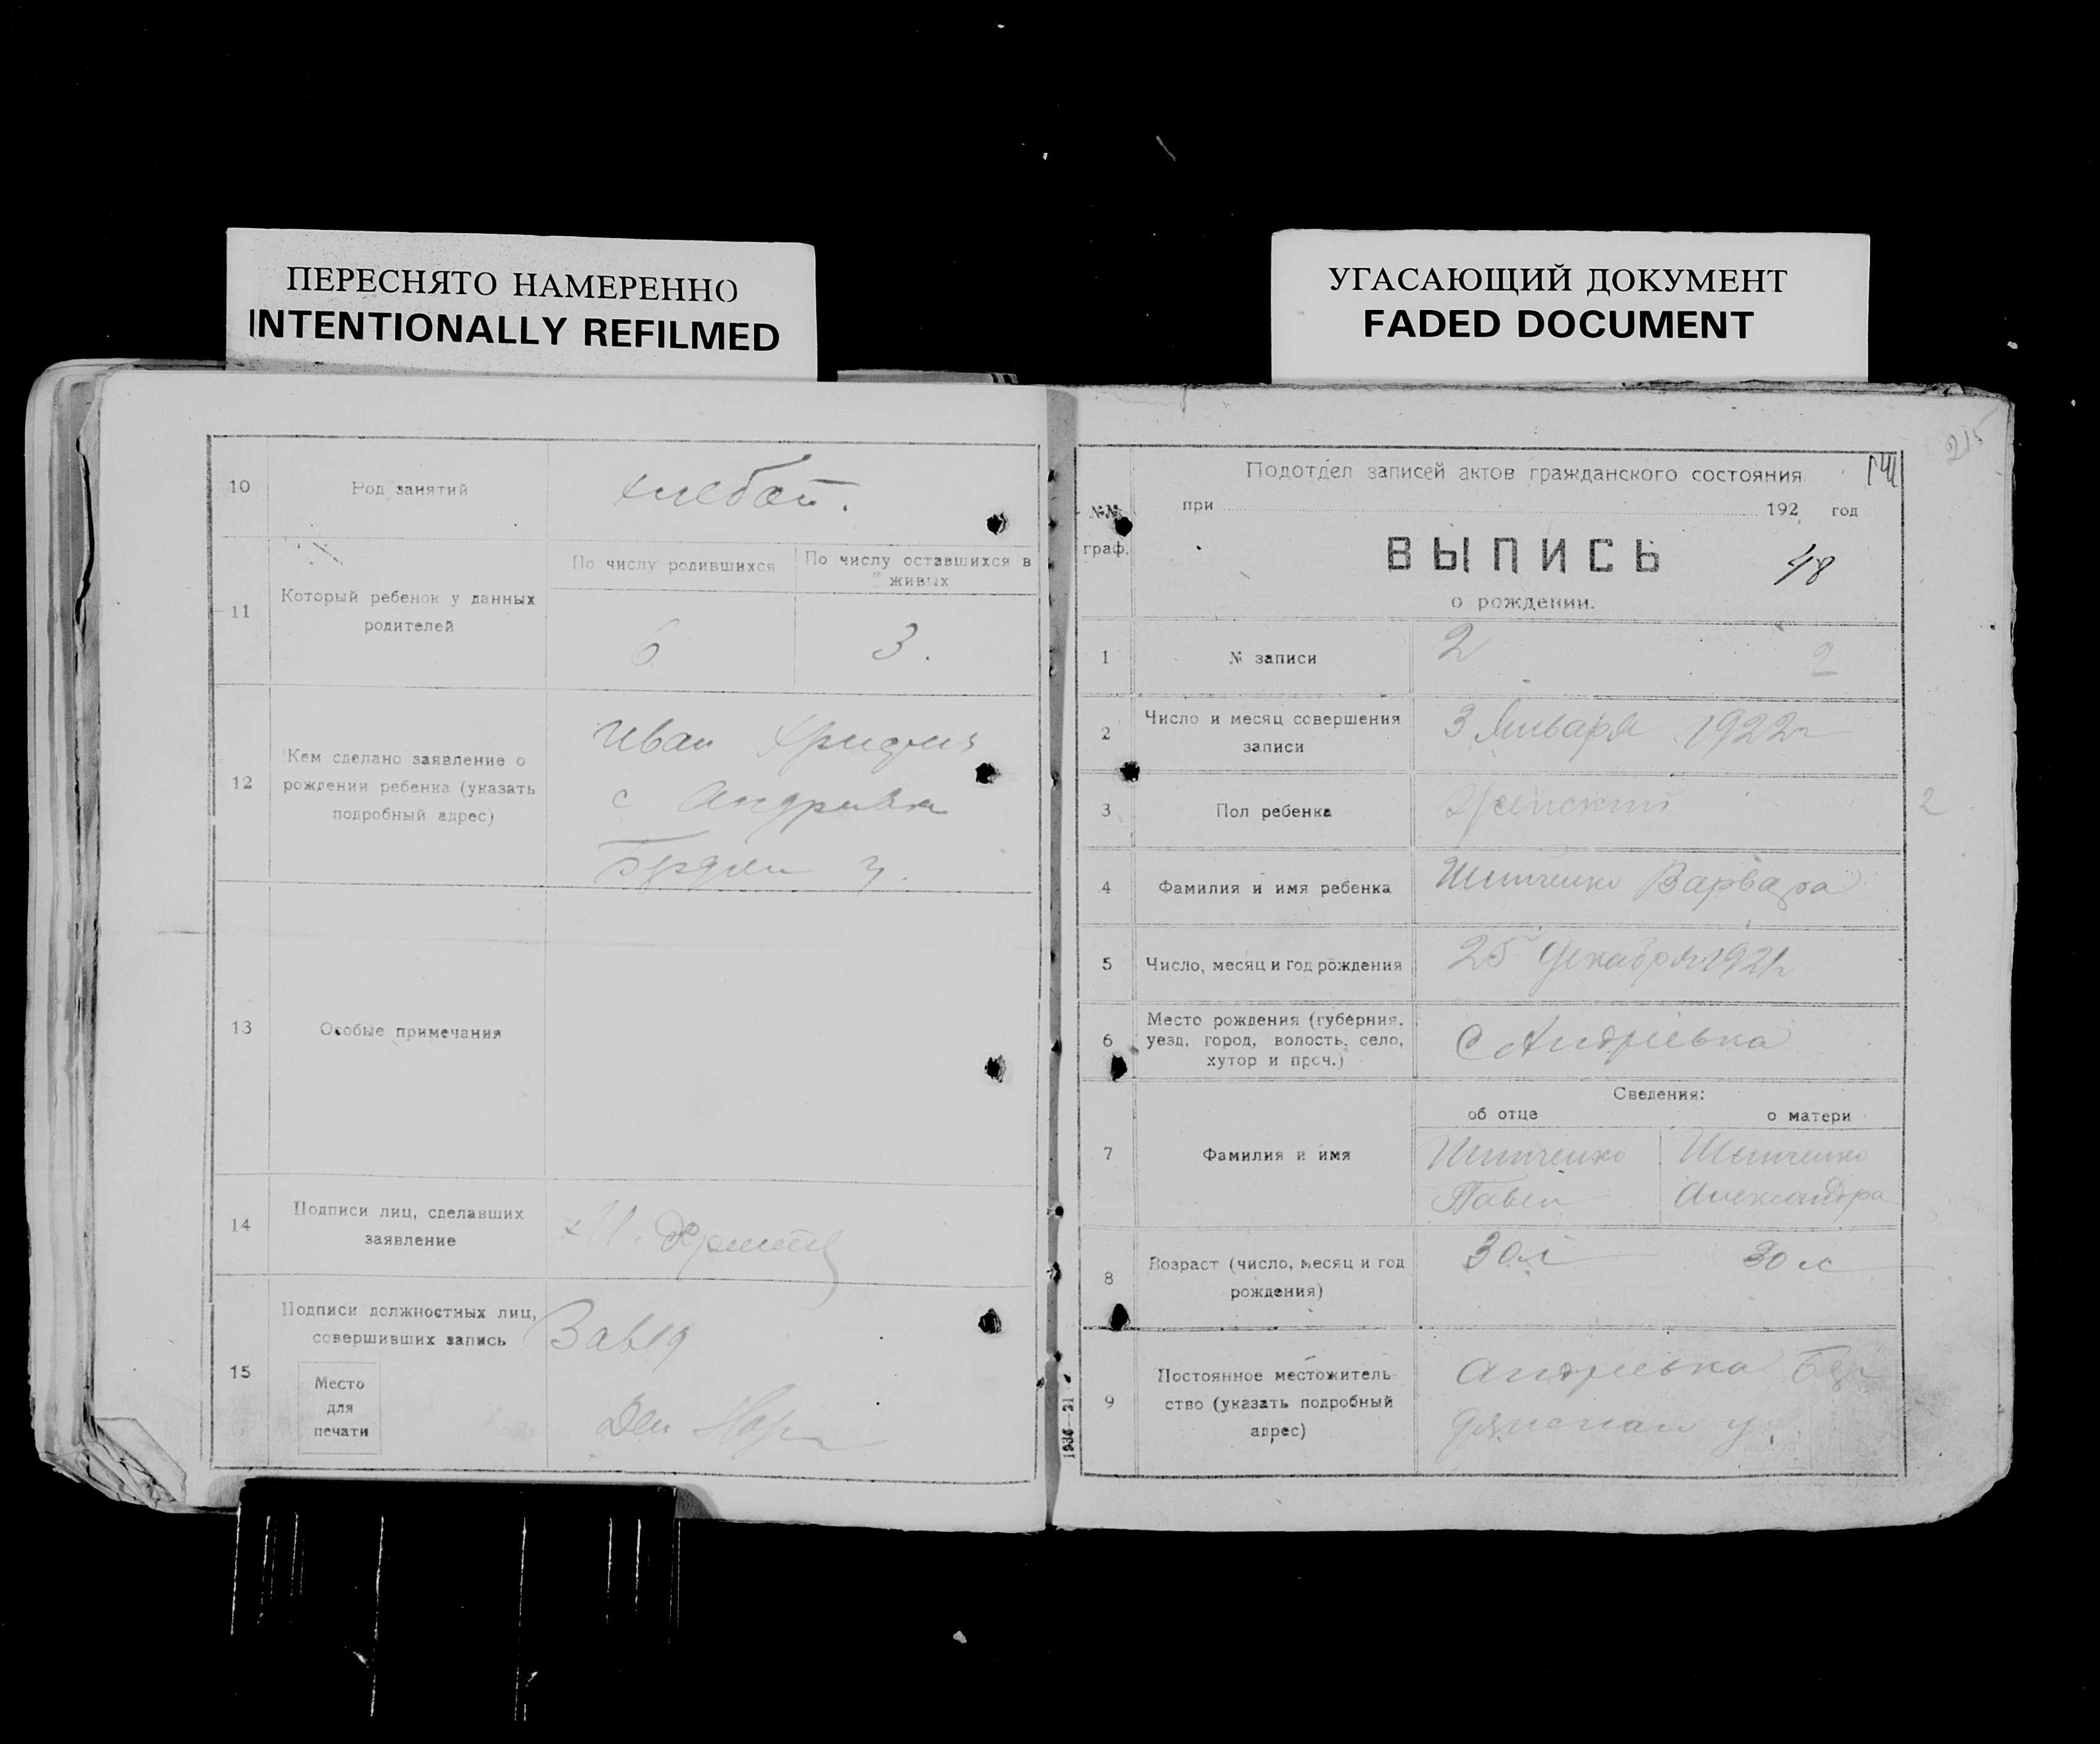 ПЕРЕСНЯТО НАМЕРЕННО
INTENTIONALLY REFILMED
УГАСАЮЩИЙ ДОКУМЕНТ
FADED DOCUMENT
10
Род занятий
хлебоп.
11
Который ребенок у данных
родителей
По числу родившихся
По числу оставшихся в
живых
6
3.
12
Кем сделано заявление о
рождении ребенка (указать
подробный адрес)
Иван
с
у.
13
Особые примечания
14
Подписи лиц, сделавших
заявление
И.
15
Подписи должностных лиц,
совершивших запись
Завед
Место
для
печати
215
Подотдел записей актов гражданского состояния
при 192 год
№№
граф.
ВЫПИСЬ
48
о рождении.
1
№ записи
2
2
2
Число и месяц совершения
записи
3 Января 1922 г
3
Пол ребенка
Женский
2
4
Фамилия и имя ребенка
Варвара
5
Число, месяц и год рождения
25 Декабря 1921 г
6
Место рождения (губерния,
уезд, город, волость, село,
хутор и проч.)
С Андріевка
Сведения:
об отце
о матери
7
Фамилия и имя
Павел
Александра
8
Возраст (число, месяц и год
рождения)
30 л
30 л
9
Постоянное местожитель-
ство (указать подробный
адрес)
Андріевка Бер
дянскаи у.
1936—21